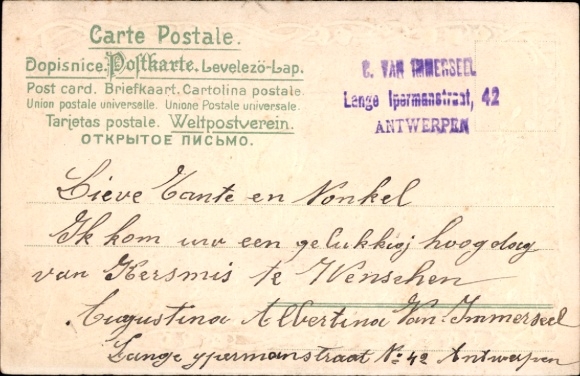 Carte Postale.
Dopisnice. Postkarte. Levelező-Lap.
Post card. Briefkaart. Cartolina postale.
Union postale universelle. Unione Postale universale.
Tarjetas postale. Weltpostverein.
ОТКРЫТОЕ ПИСЬМО.
C. VAN IMMERSEEL
Lange Ipermanstraat, 42
ANTWERPEN
Lieve Tante en Nonkel
Ik kom uw een gelukkig hoogdag
van Kersmis te Wenschen
Augustina Albertina Van Immerseel
Lange ypermanstraat No 42 Antwerpen